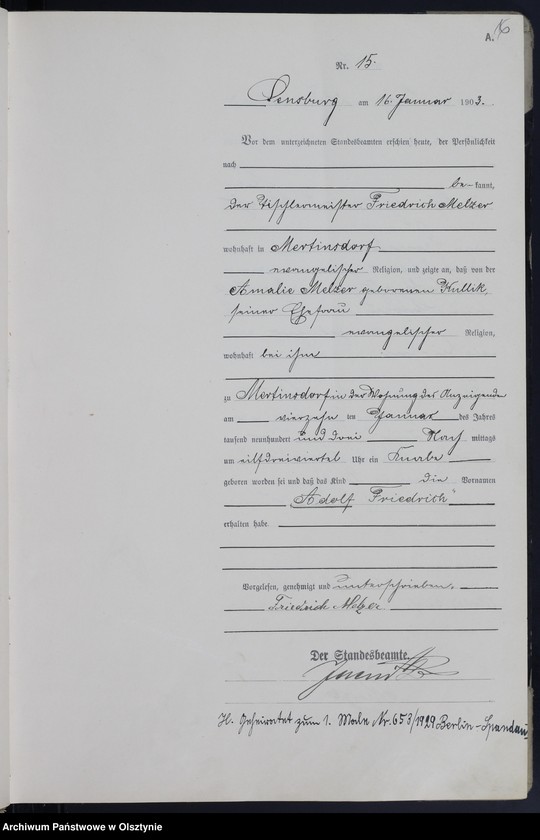 A. 16
Nr. 15.
Sensburg am 16. Januar 1903.
Vor dem unterzeichneten Standesbeamten erschien heute, der Persönlichkeit
nach
be- kannt,
der Tischlermeister Friedrich Melzer
wohnhaft in Mertinsdorf
evangelischer Religion, und zeigte an, daß von der
Amalie Melzer geborenen Kullik,
seiner Ehefrau
evangelischer Religion,
wohnhaft bei ihm
zu Mertinsdorf in der Wohnung des Anzeigenden
am vierzehn ten Januar des Jahres
tausend neunhundert und drei Nach mittags
um eilfdreiviertel Uhr ein Knabe
geboren worden sei und daß das Kind die Vornamen
„Adolf Friedrich"
erhalten habe.
Vorgelesen, genehmigt und unterschrieben.
Friedrich Melzer
Der Standesbeamte.
H. Geheiratet zum 1. Male Nr. 653/1929 Berlin-Spandau
Archiwum Państwowe w Olsztynie